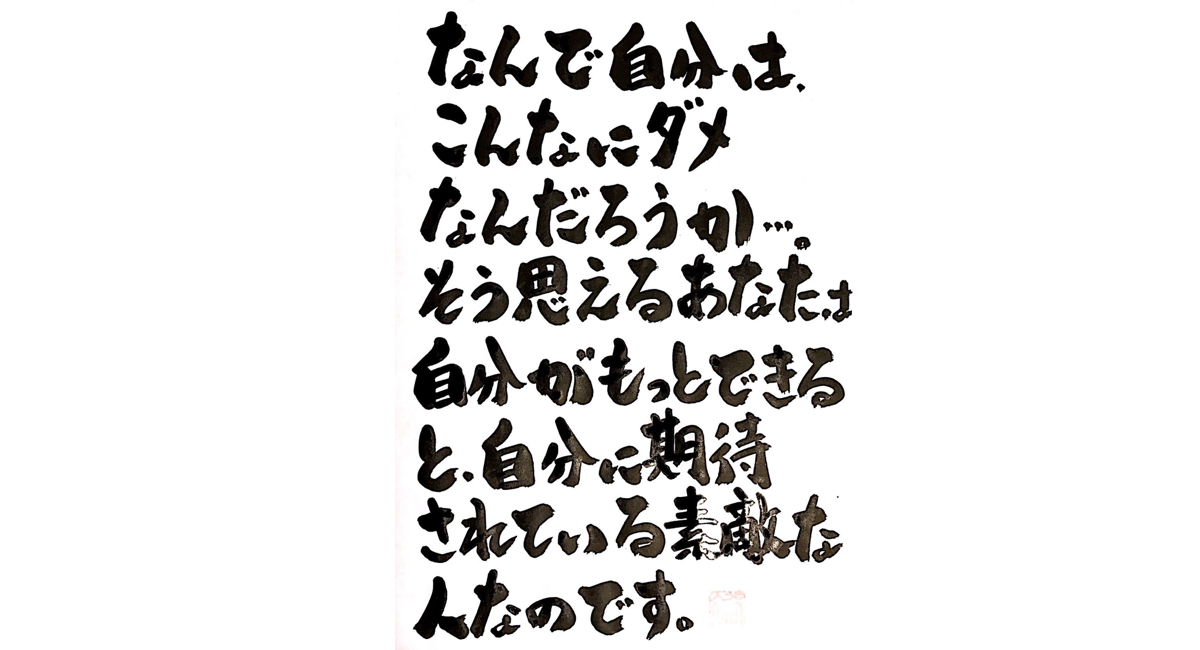 なんで自分は、
こんなにダメ
なんだろうか…。
そう思えるあなたは
自分がもっとできる
と、自分に期待
されている素敵な
人なのです。